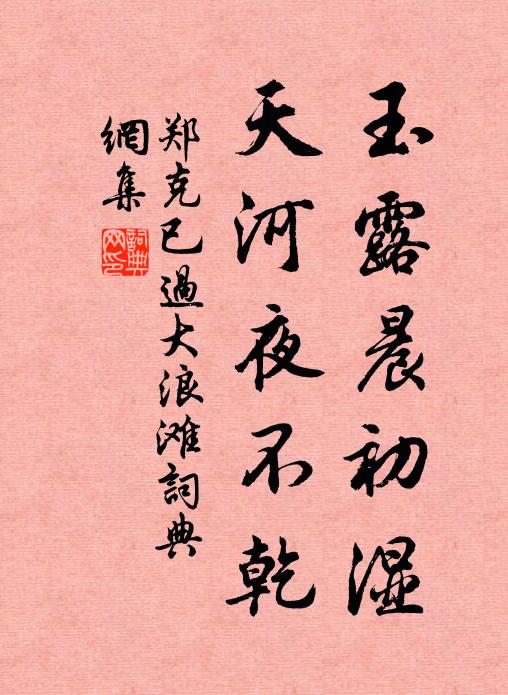 玉露晨初湿
天河夜不乾
郑克已過大浪滩詞典
網集
詞典
网印